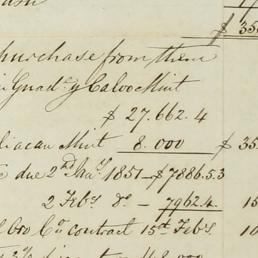 $ 350
purchase from them
Guad.e y Calvo Mint
$ 27.662.4
liacan Mint 8.000 $ 35
due 2nd Jna.y 1851 - $ 7886.5.3
2 Feb.y do - 7962.4. 15
Co contract 15th Feb.y 10